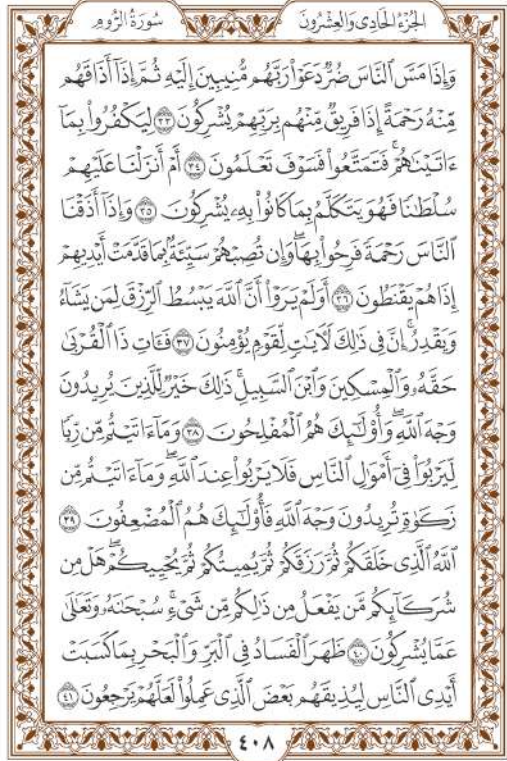 الجُزْءُ الحَادِى وَالعِشْرُونَ
سُورَةُ الرُّومِ
وَإِذَا مَسَّ ٱلنَّاسَ ضُرٌّ دَعَوْاْ رَبَّهُم مُّنِيبِينَ إِلَيْهِ ثُمَّ إِذَآ أَذَاقَهُم
مِّنْهُ رَحْمَةً إِذَا فَرِيقٌ مِّنْهُم بِرَبِّهِمْ يُشْرِكُونَ ٣٣ لِيَكْفُرُواْ بِمَآ
ءَاتَيْنَٰهُمْ ۚ فَتَمَتَّعُواْ فَسَوْفَ تَعْلَمُونَ ٣٤ أَمْ أَنزَلْنَا عَلَيْهِمْ
سُلْطَٰنًا فَهُوَ يَتَكَلَّمُ بِمَا كَانُواْ بِهِۦ يُشْرِكُونَ ٣٥ وَإِذَآ أَذَقْنَا
ٱلنَّاسَ رَحْمَةً فَرِحُواْ بِهَا ۖ وَإِن تُصِبْهُمْ سَيِّئَةٌۢ بِمَا قَدَّمَتْ أَيْدِيهِمْ
إِذَا هُمْ يَقْنَطُونَ ٣٦ أَوَلَمْ يَرَوْاْ أَنَّ ٱللَّهَ يَبْسُطُ ٱلرِّزْقَ لِمَن يَشَآءُ
وَيَقْدِرُ ۚ إِنَّ فِى ذَٰلِكَ لَءَايَٰتٍ لِّقَوْمٍ يُؤْمِنُونَ ٣٧ فَـَٔاتِ ذَا ٱلْقُرْبَىٰ
حَقَّهُۥ وَٱلْمِسْكِينَ وَٱبْنَ ٱلسَّبِيلِ ۚ ذَٰلِكَ خَيْرٌ لِّلَّذِينَ يُرِيدُونَ
وَجْهَ ٱللَّهِ ۖ وَأُوْلَٰٓئِكَ هُمُ ٱلْمُفْلِحُونَ ٣٨ وَمَآ ءَاتَيْتُم مِّن رِّبًا
لِّيَرْبُوَاْ فِىٓ أَمْوَٰلِ ٱلنَّاسِ فَلَا يَرْبُواْ عِندَ ٱللَّهِ ۖ وَمَآ ءَاتَيْتُم مِّن
زَكَوٰةٍ تُرِيدُونَ وَجْهَ ٱللَّهِ فَأُوْلَٰٓئِكَ هُمُ ٱلْمُضْعِفُونَ ٣٩
ٱللَّهُ ٱلَّذِى خَلَقَكُمْ ثُمَّ رَزَقَكُمْ ثُمَّ يُمِيتُكُمْ ثُمَّ يُحْيِيكُمْ ۖ هَلْ مِن
شُرَكَآئِكُم مَّن يَفْعَلُ مِن ذَٰلِكُم مِّن شَىْءٍ ۚ سُبْحَٰنَهُۥ وَتَعَٰلَىٰ
عَمَّا يُشْرِكُونَ ٤٠ ظَهَرَ ٱلْفَسَادُ فِى ٱلْبَرِّ وَٱلْبَحْرِ بِمَا كَسَبَتْ
أَيْدِى ٱلنَّاسِ لِيُذِيقَهُم بَعْضَ ٱلَّذِى عَمِلُواْ لَعَلَّهُمْ يَرْجِعُونَ ٤١
٤٠٨